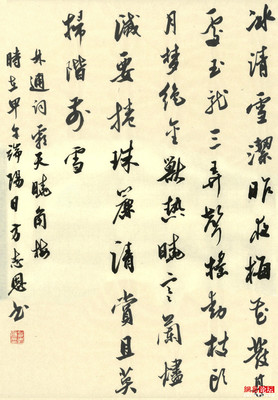 冰清雪潔昨夜梅花發甚
處玉龍三弄聲搖動枝頭
月夢絕金獸熱曉寒蘭燼
滅要捲珠簾清賞且莫
掃階前雪
林逋詞霜天曉角梅
時在甲午端陽日方志恩书